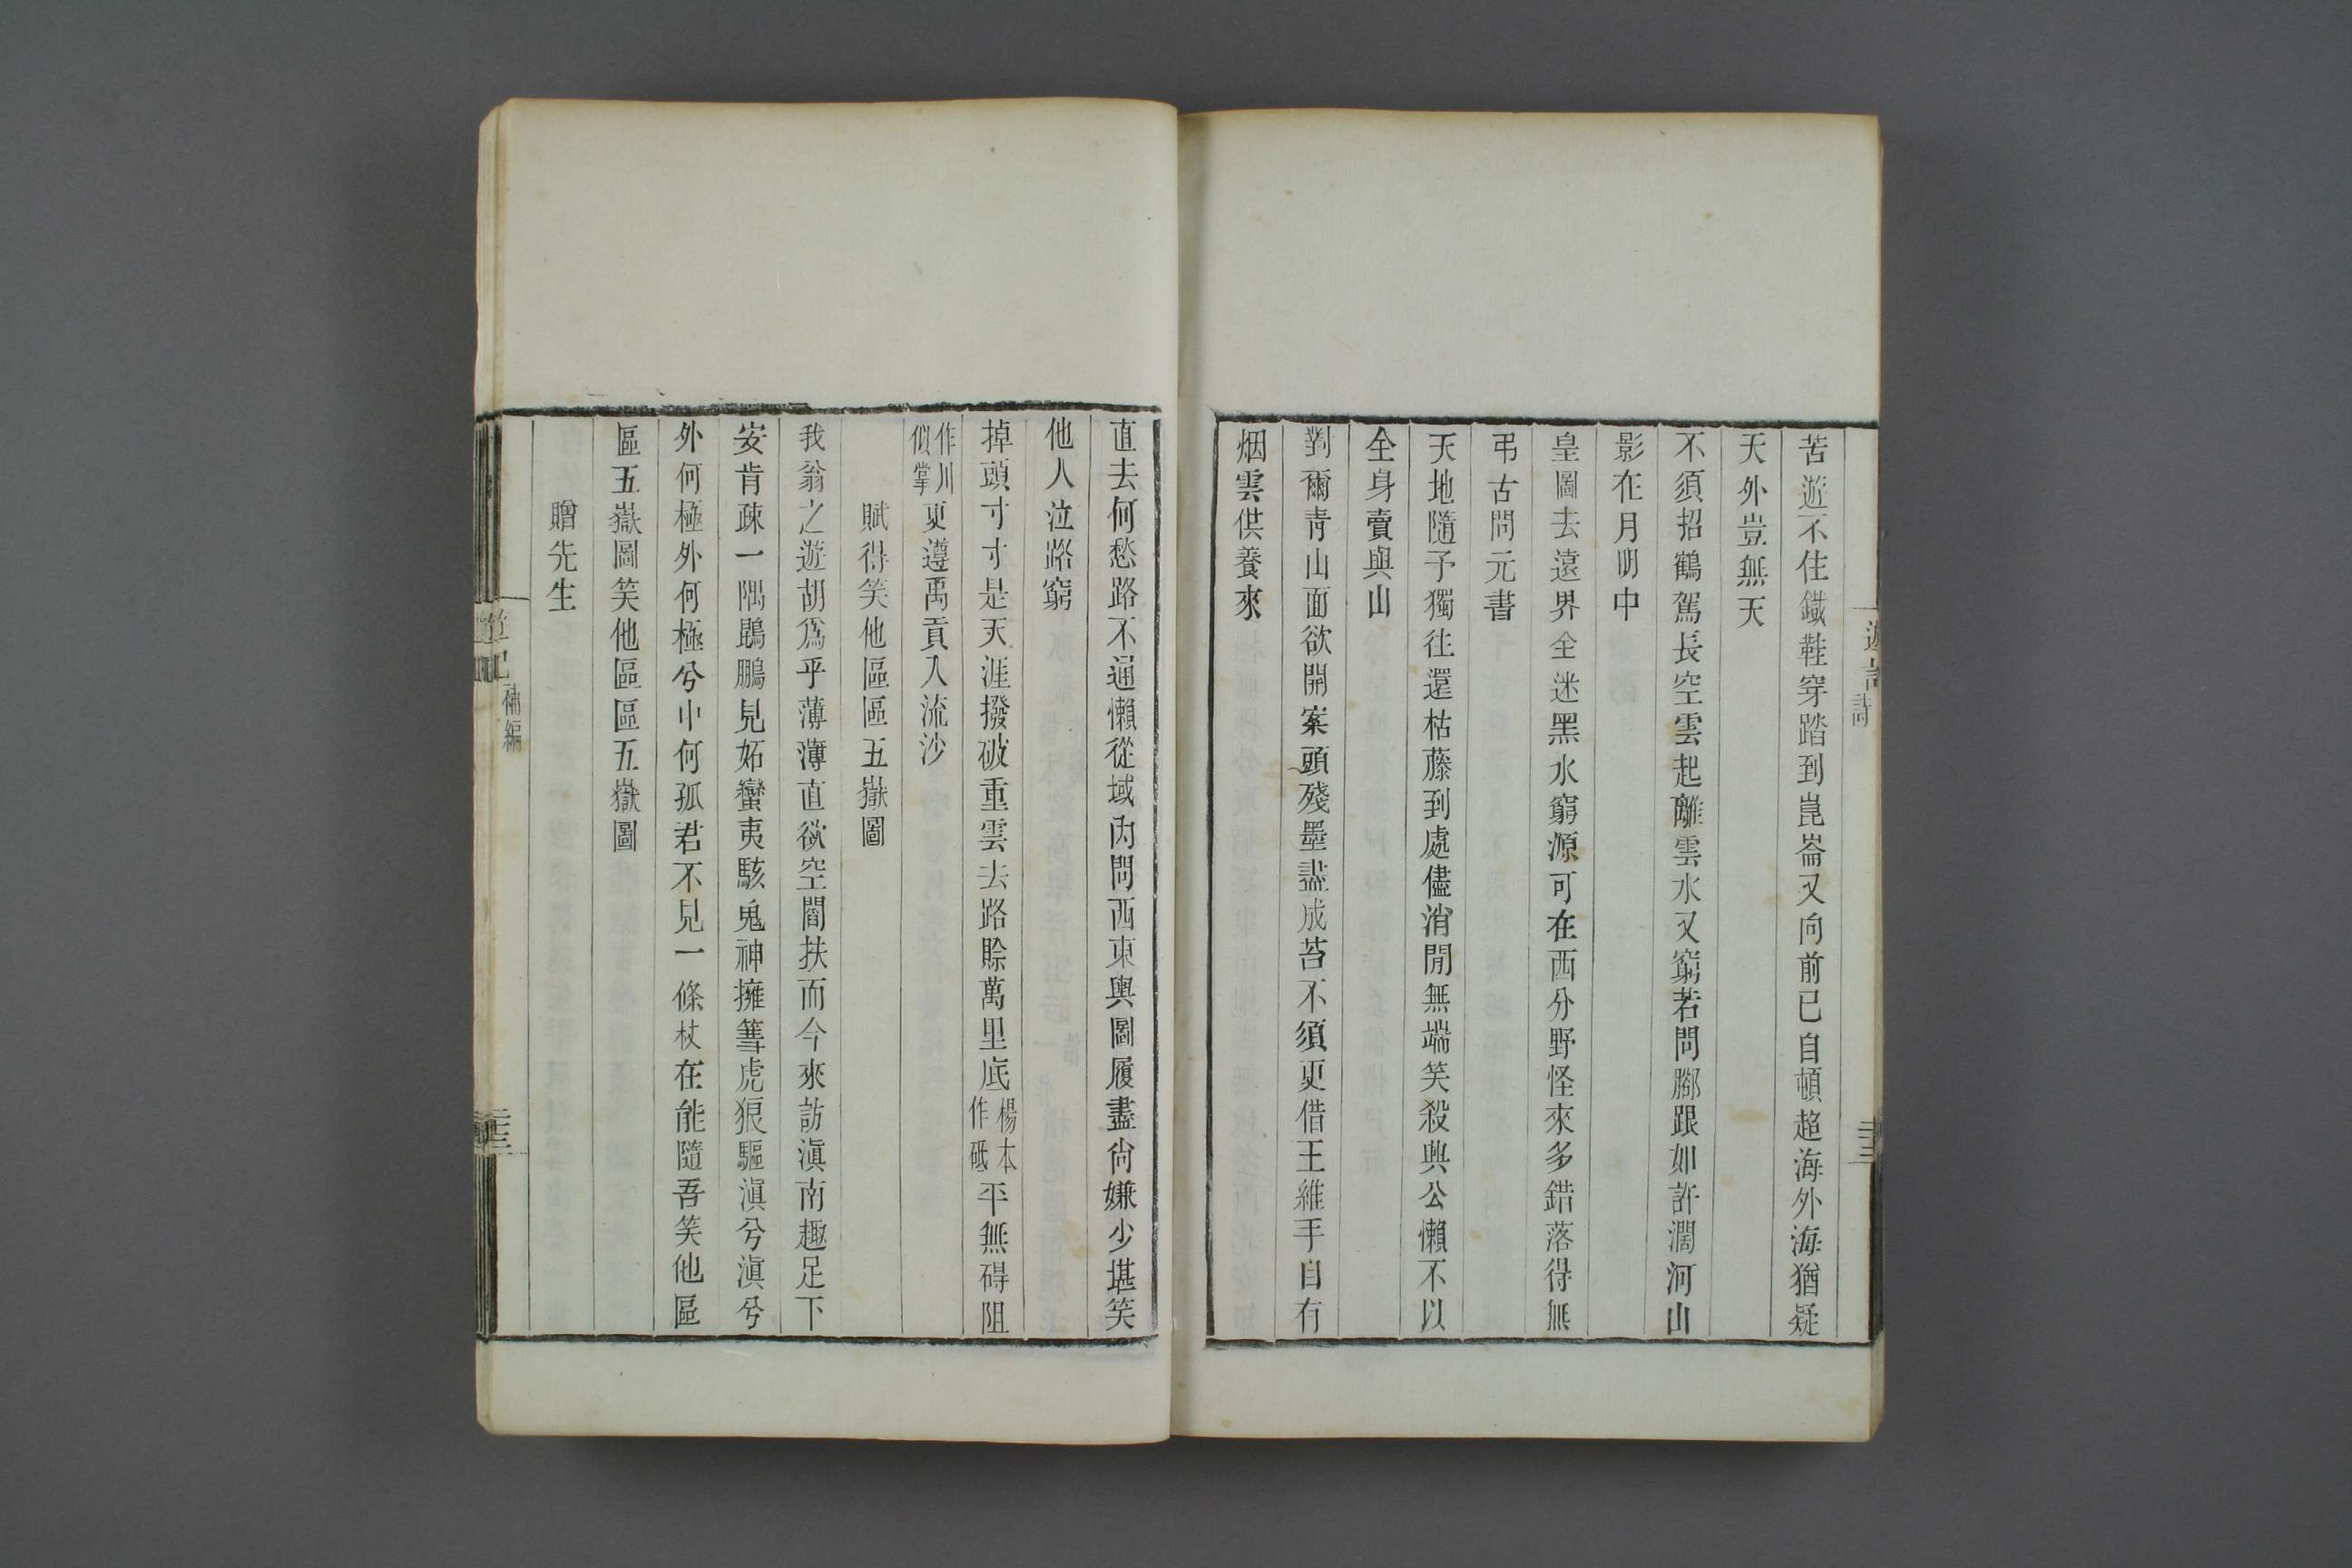 苦遊不住鐵鞋穿踏到崑崙又向前已自頓超海外海猶疑
天外豈無天
不須招鶴駕長空雲起離雲水又窮若問腳跟如許濶河山
影在月明中
皇圖去遠界全迷黑水窮源可在西分野怪來多錯落得無
弔古問元書
天地隨予獨往還枯藤到處儘消閒無端笑殺興公懶不以
全身賣與山
對爾青山面欲開案頭殘墨盡成苔不須更借王維手自有
烟雲供養來
直去何愁路不通懶從域內問西東輿圖履盡尙嫌少堪笑
他人泣路窮
掉頭寸寸是天涯撥破重雲去路賒萬里底楊本作砥平無碍阻
作川似掌更遵禹貢入流沙
賦得笑他區區五嶽圖
我翁之遊胡爲乎薄薄直欲空閶扶而今來訪滇南趣足下
安肯疎一隅鵾鵬見妬蠻夷駭鬼神擁篲虎狼驅滇兮滇兮
外何極外何極兮中何孤君不見一條杖在能隨吾笑他區
區五嶽圖笑他區區五嶽圖
贈先生
補編